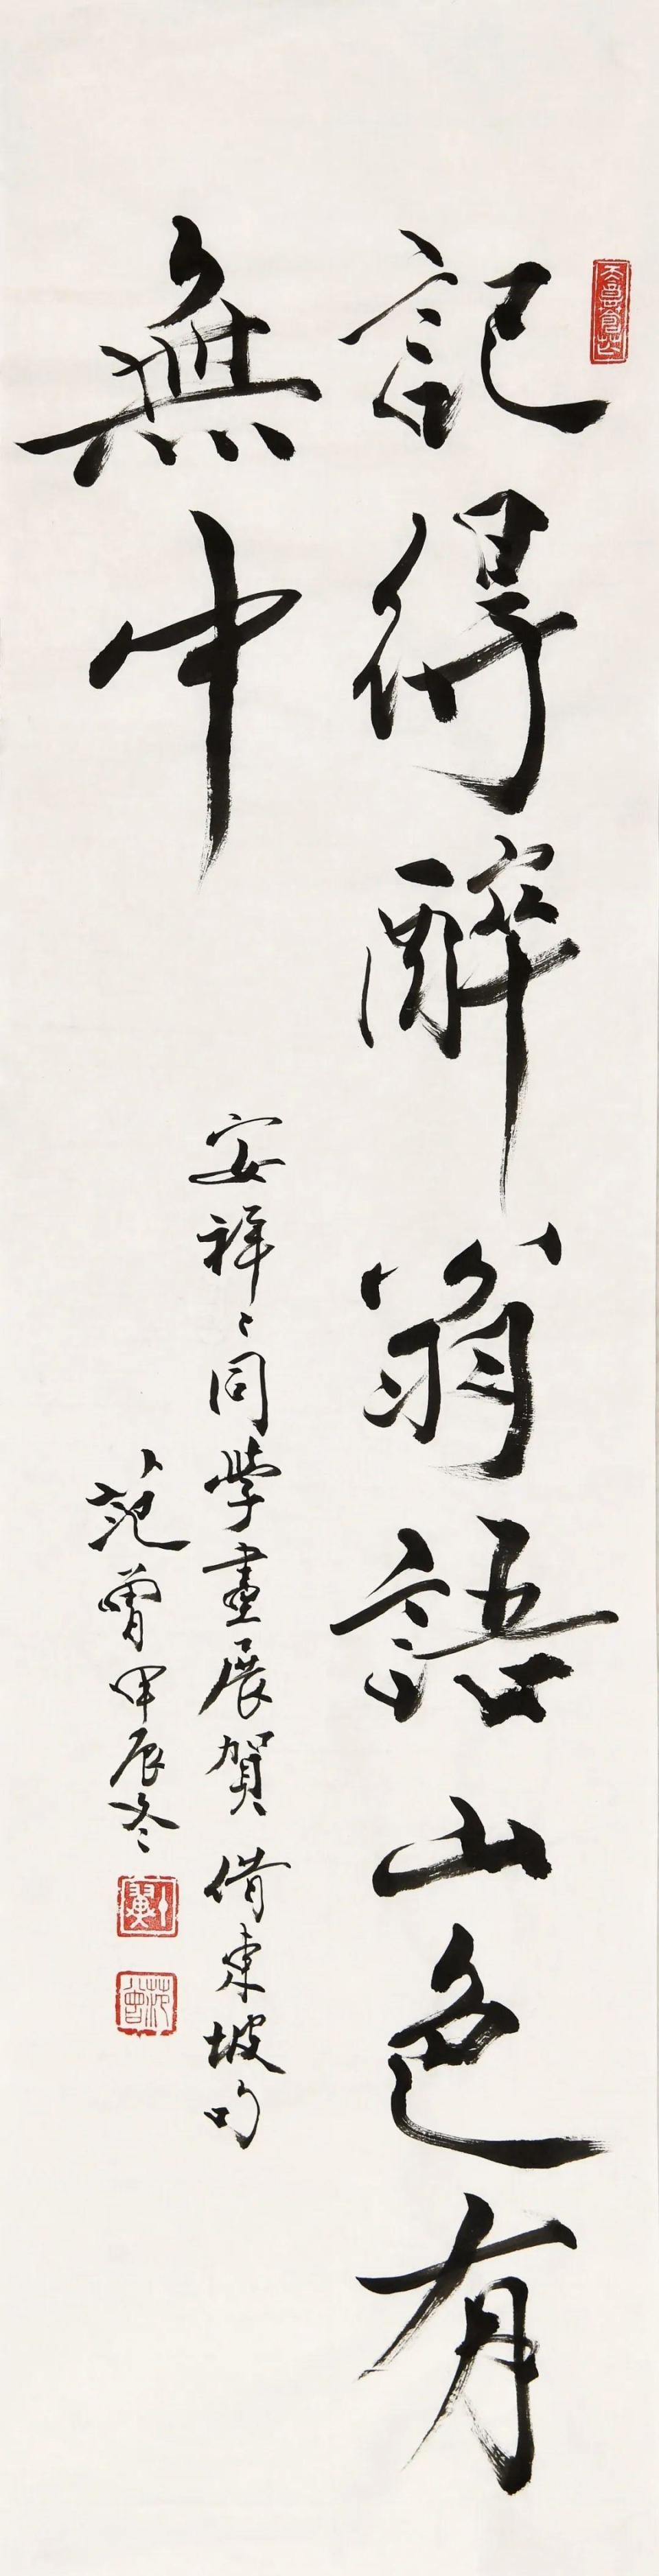 記得醉翁語山色有
無中
安祥〻同學畫展賀借東坡句
范曾甲辰冬
范曾